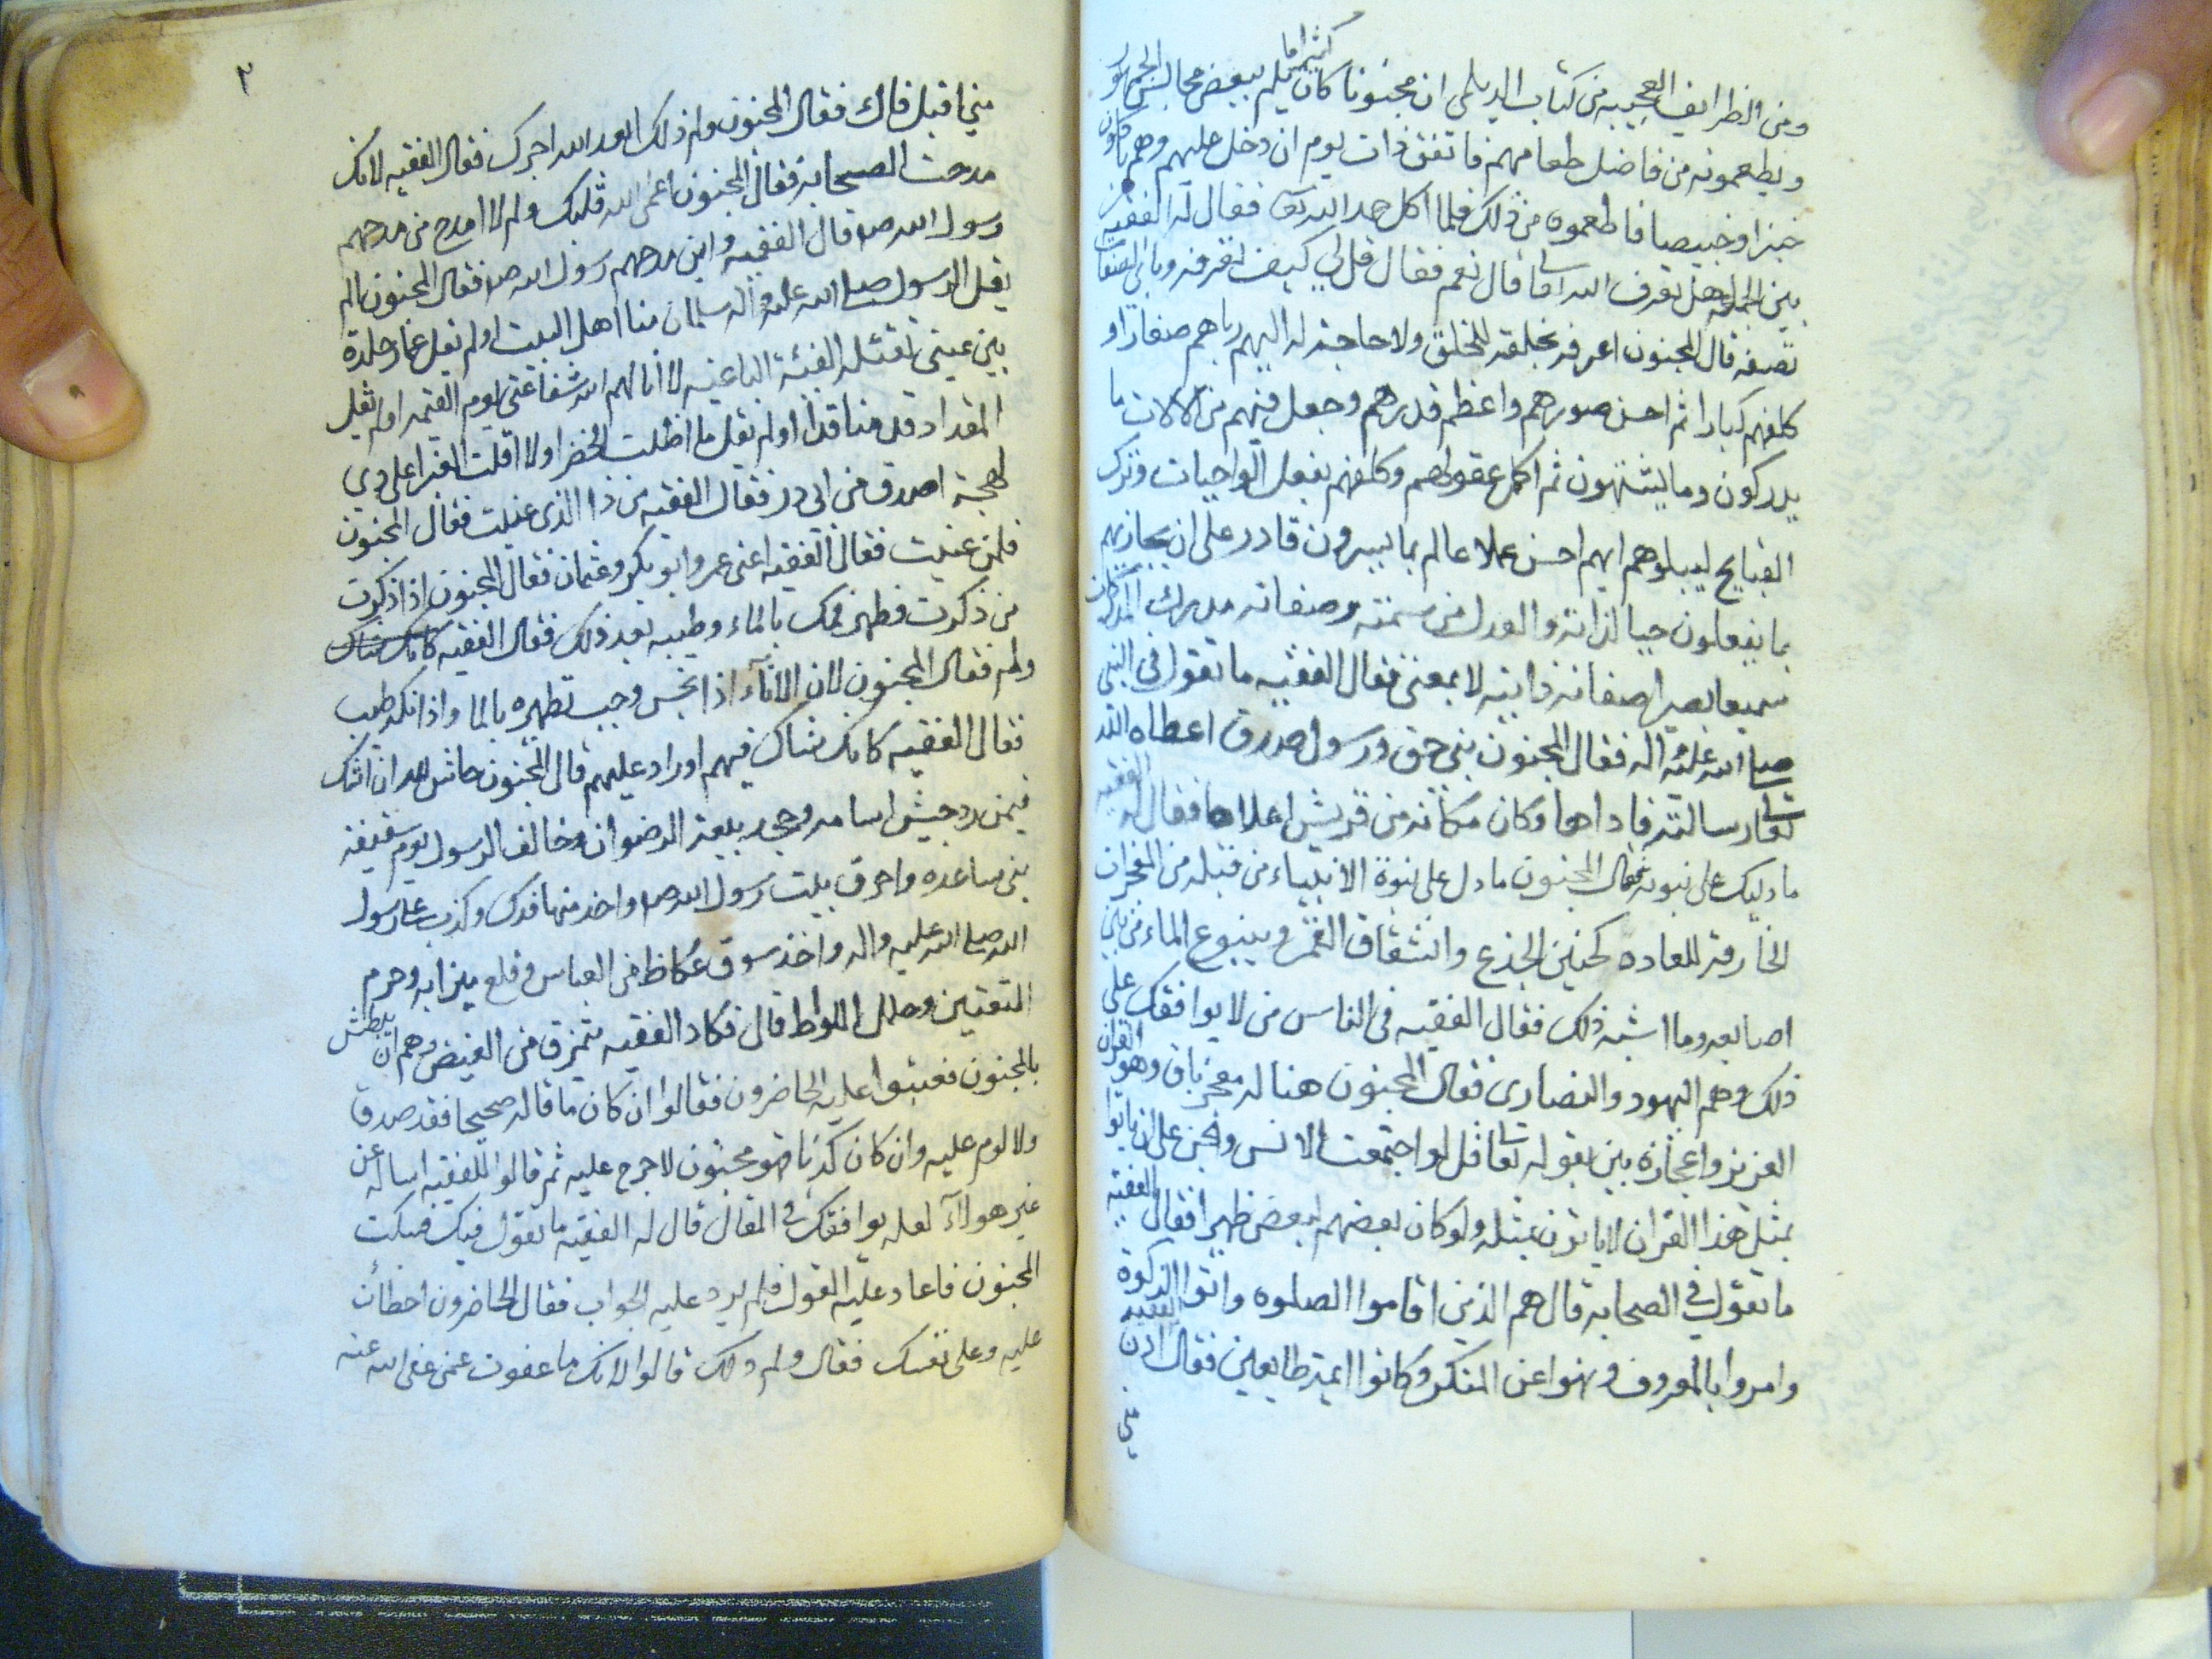 ومن الطرايف العجيبه من كتاب الديلمى ان مجنونا كان كثيرا ما يلم ببعض مجالس الجمهور
ويطعمونه من فاضل طعامهم فاتفق ذات يوم ان دخل عليهم وهم ياكلون
خبزا وخبيصا فاطعموه من ذلك فلما اكل حمد الله تعالى فقال له الفقيه من
بين الجماعه هل تعرف الله تعالى قال نعم فقال قل لي كيف تعرفه وباى الصفات
تصفه قال المجنون اعرفه بخلقه للخلق ولا حاجة له اليهم رباهم صغارا و
كلفهم كبارا ثم احسن صورهم واعظم قدرهم وجعل فيهم من الالات ما
يدركون وما يشتهون ثم اكمل عقولهم وكلفهم بفعل الواجبات وترك
القبايح ليبلوهم ايهم احسن عملا عالم بما يسرون قادر على ان يجازيهم
بما يفعلون حيا لذاته والعدل من سمته وصفاته مدرك المدركات
سميعا بصيرا صفاته ذاتيه لا بمعنى فقال الفقيه ما تقول في النبي
صلى الله عليه واله فقال المجنون نبي حق ورسول صدق اعطاه الله
تعالى رسالته فاداها وكان مكانه من قريش اعلاها فقال له الفقيه
ما دليلك على نبوته فقال المجنون ما دل على نبوة الانبياء من قبله من المعجزات
الخارقة للعاده كحنين الجذع وانشقاق القمر وينبوع الماء من بين
اصابعه وما اشبه ذلك فقال الفقيه فى الناس من لا يوافقك على
ذلك وهم اليهود والنصارى فقال المجنون هنا له معجز باق وهو القران
العزيز واعجازه بين بقوله تعالى قل لو اجتمعت الانس والجن على ان ياتوا
بمثل هذا القران لا ياتون بمثله ولو كان بعضهم لبعض ظهيرا فقال الفقيه
ما تقول في الصحابه قال هم الذين اقاموا الصلوه واتوا الزكوة
وامروا بالمعروف ونهوا عن المنكر وكانوا ائمة طايعين فقال الفقيه ادن
مني
٢
مني اقبل فاك فقال المجنون ولم ذلك ابعد الله اجرك فقال الفقيه لانك
مدحت الصحابه فقال المجنون اعمى الله قلبك ولم لا امدح من مدحهم
رسول الله ص قال الفقيه واين مدحهم رسول الله ص فقال المجنون الم
يقل الرسول صلى الله عليه واله سلمان منا اهل البيت اولم يقل عمار جلدة
بين عيني تقتله الفئة الباغيه لا انالهم الله شفاعتي يوم القيمه اولم يقل
المقداد قد منا قدا اولم يقل ما اظلت الخضرا ولا اقلت الغبرا على ذي
لهجة اصدق من ابى ذر فقال الفقيه من ذا الذى عنيت فقال المجنون
فلمن عنيت فقال الفقيه اعنى عمر وابو بكر وعثمان فقال المجنون اذا ذكرت
من ذكرت فطهر فمك بالماء وطيبه بعد ذلك فقال الفقيه كانك شاك
ولم فقال المجنون لان الاناء اذا نجس وجب تطهيره بالما واذا نكه طيب
فقال الفقيه كانك شاك فيهم او راد عليهم قال المجنون حاش لله ان اشك
فيمن رد جيش اسامه وجحد بيعة الرضوان وخالف الرسول يوم سقيفة
بني ساعده واحرق بيت رسول الله ص واخذ منها فدك وكذب على رسول
الله صلى الله عليه واله واخذ سوق عكاظ من العباس وقلع ميزابه وحرم
المتعتين وحلل اللواط قال فكاد الفقيه يتمزق من الغيض وهم ان يبطش
بالمجنون فعتبوا عليه الحاضرون فقالوا ان كان ما قاله صحيحا فقد صدق
ولا لوم عليه وان كان كذبا فهو مجنون لا حرج عليه ثم قالوا للفقيه اساله عن
غير هولاء لعله يوافقك فى المقال قال له الفقيه ما تقول فيك فسكت
المجنون فاعاد عليه القول فلم يرد عليه الجواب فقال الحاضرون اخطات
عليه وعلى نفسك فقال ولم ذلك قالوا لانك ما عفوت عمن عفى الله عنه